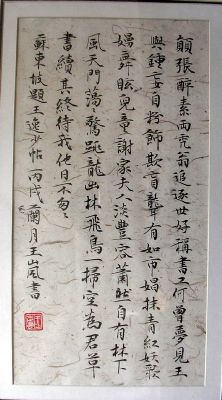 顛張醉素兩禿翁追逐世好稱書工何曾夢見王
與鍾妄自粉飾欺盲聾有如市娼抹青紅妖歌
嫚舞眩兒童謝家夫人淡豐容蕭然自有林下
風天門蕩〻驚跳龍出林飛鳥一掃空為君草
書續其終待我他日不匆〻
蘇東坡題王逸少帖 丙戌蘭月王嵐書